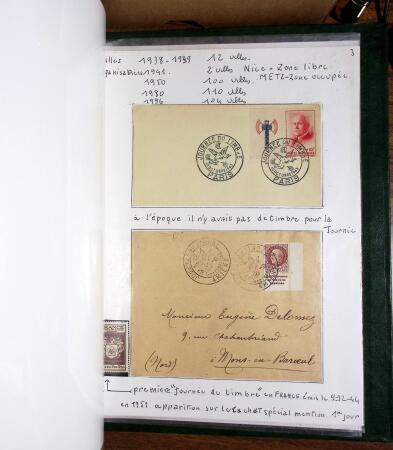 3
illes 1938-1939 12 villes
ganisatrices 1941. 2 villes Nice - Zone libre
METZ-Zone occupée.
1950 100 villes
1980 110 villes
1996 104 villes
JOURNÉE DU TIMBRE
PARIS
JOURNÉE DU TIMBRE
PARIS
à l'époque il n'y avait pas de timbre pour la
Journée
Monsieur Eugène
9, rue Chateaubriand
(Nord) à Mons-en-Baroeul
FRANCE
première "Journée du timbre" en FRANCE émis le 9-12-44
en 1951 apparition sur le cachet spécial mention 1er jour